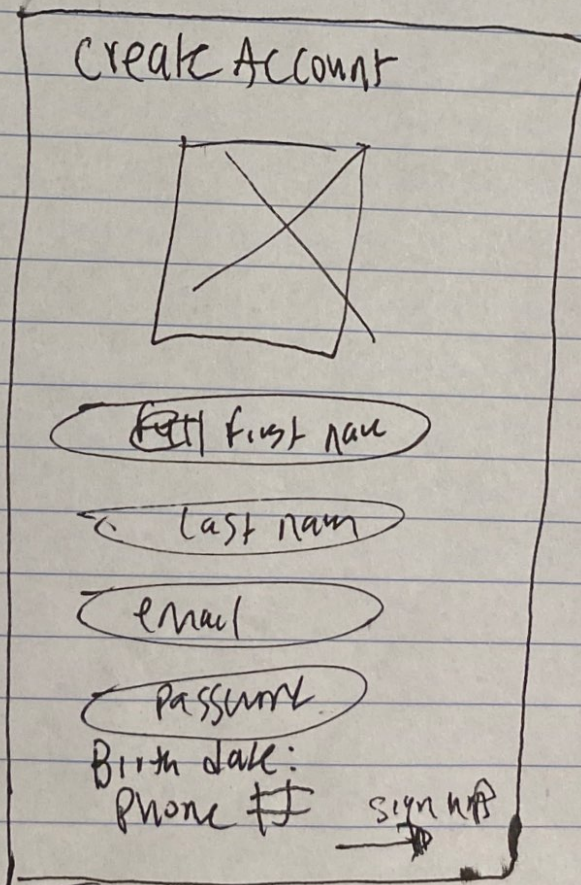 Create Account
first name
last name
email
password
Birth date:
phone #
sign up